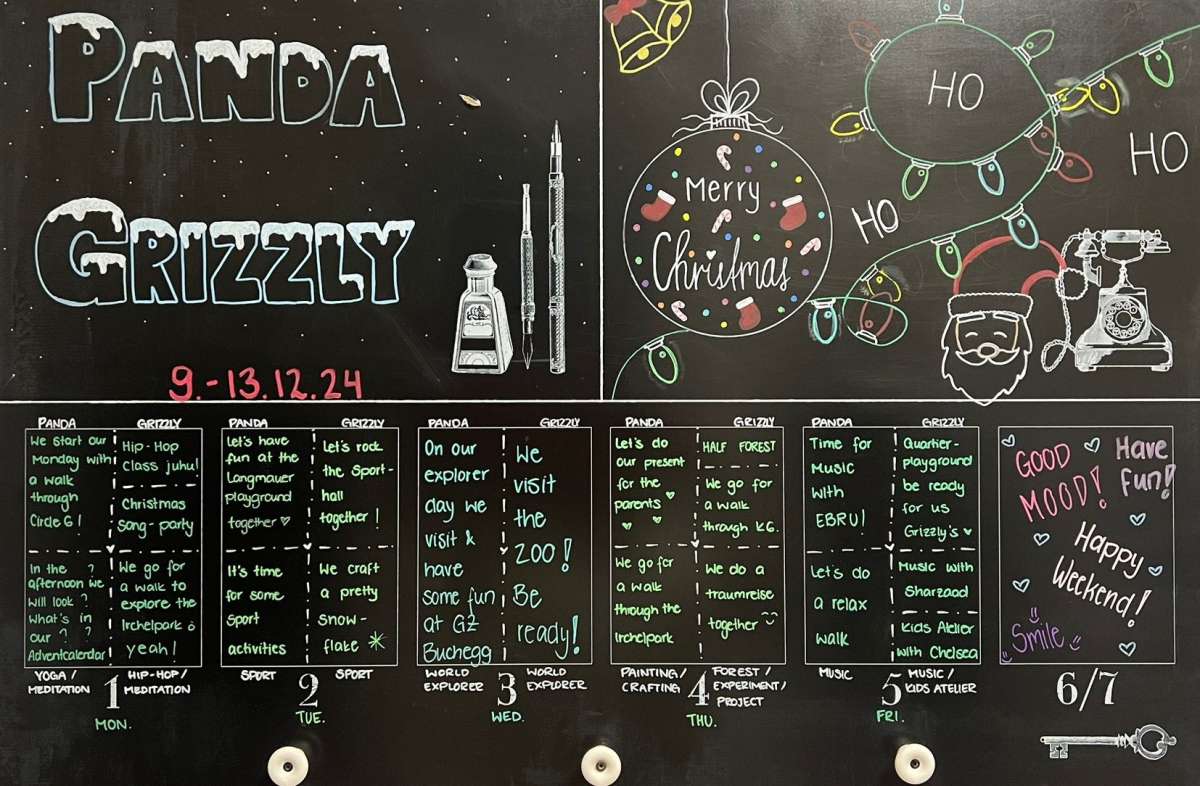 PANDA
GRIZZLY
9.-13.12.24
Merry
Christmas
HO
HO
HO
PANDA
We start our
Monday with
a walk
through
Circle 6!
In the ?
afternoon we
will look ?
What's in
our ? ?
Adventcalendar
YOGA /
MEDITATION
GRIZZLY
Hip-Hop
Class juhu!
Christmas
Song-party
We go for
a walk to
explore the
Irchelpark
yeah!
HIP-HOP/
MEDITATION
1
MON.
PANDA
Let's have
fun at the
Langmauer
playground
together ♡
It's time
for some
sport
activities
SPORT
GRIZZLY
Let's rock
the Sport-
hall
together!
We craft
a pretty
snow-
flake
SPORT
2
TUE.
PANDA
On our
explorer
day we
visit &
have
some fun
at GZ
Buchegg
WORLD
EXPLORER
GRIZZLY
We
visit
the
ZOO!
Be
ready!
WORLD
EXPLORER
3
WED.
PANDA
Let's do
our present
for the
parents ♥
We go for
a walk
through the
Irchelpark
PAINTING/
CRAFTING
GRIZZLY
HALF FOREST
We go for
a walk
through KG.
We do a
traumreise
together
FOREST/
EXPERIMENT/
PROJECT
4
THU.
PANDA
Time for
MUSIC
with
EBRU!
Let's do
a relax
walk
MUSIC
GRIZZLY
Quartier-
playground
be ready
for us
Grizzly's ♥
Music with
Sharzaad
Kids Atelier
with Chelsea
MUSIC /
KIDS ATELIER
5
FRI.
GOOD
MOOD!
Have
Fun!
Happy
Weekend!
Smile
6/7